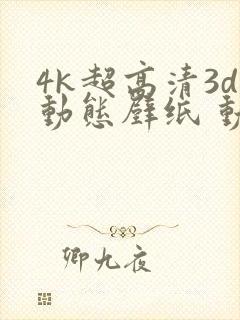 4k超高清3d
動態壁纸 動
卿九夜